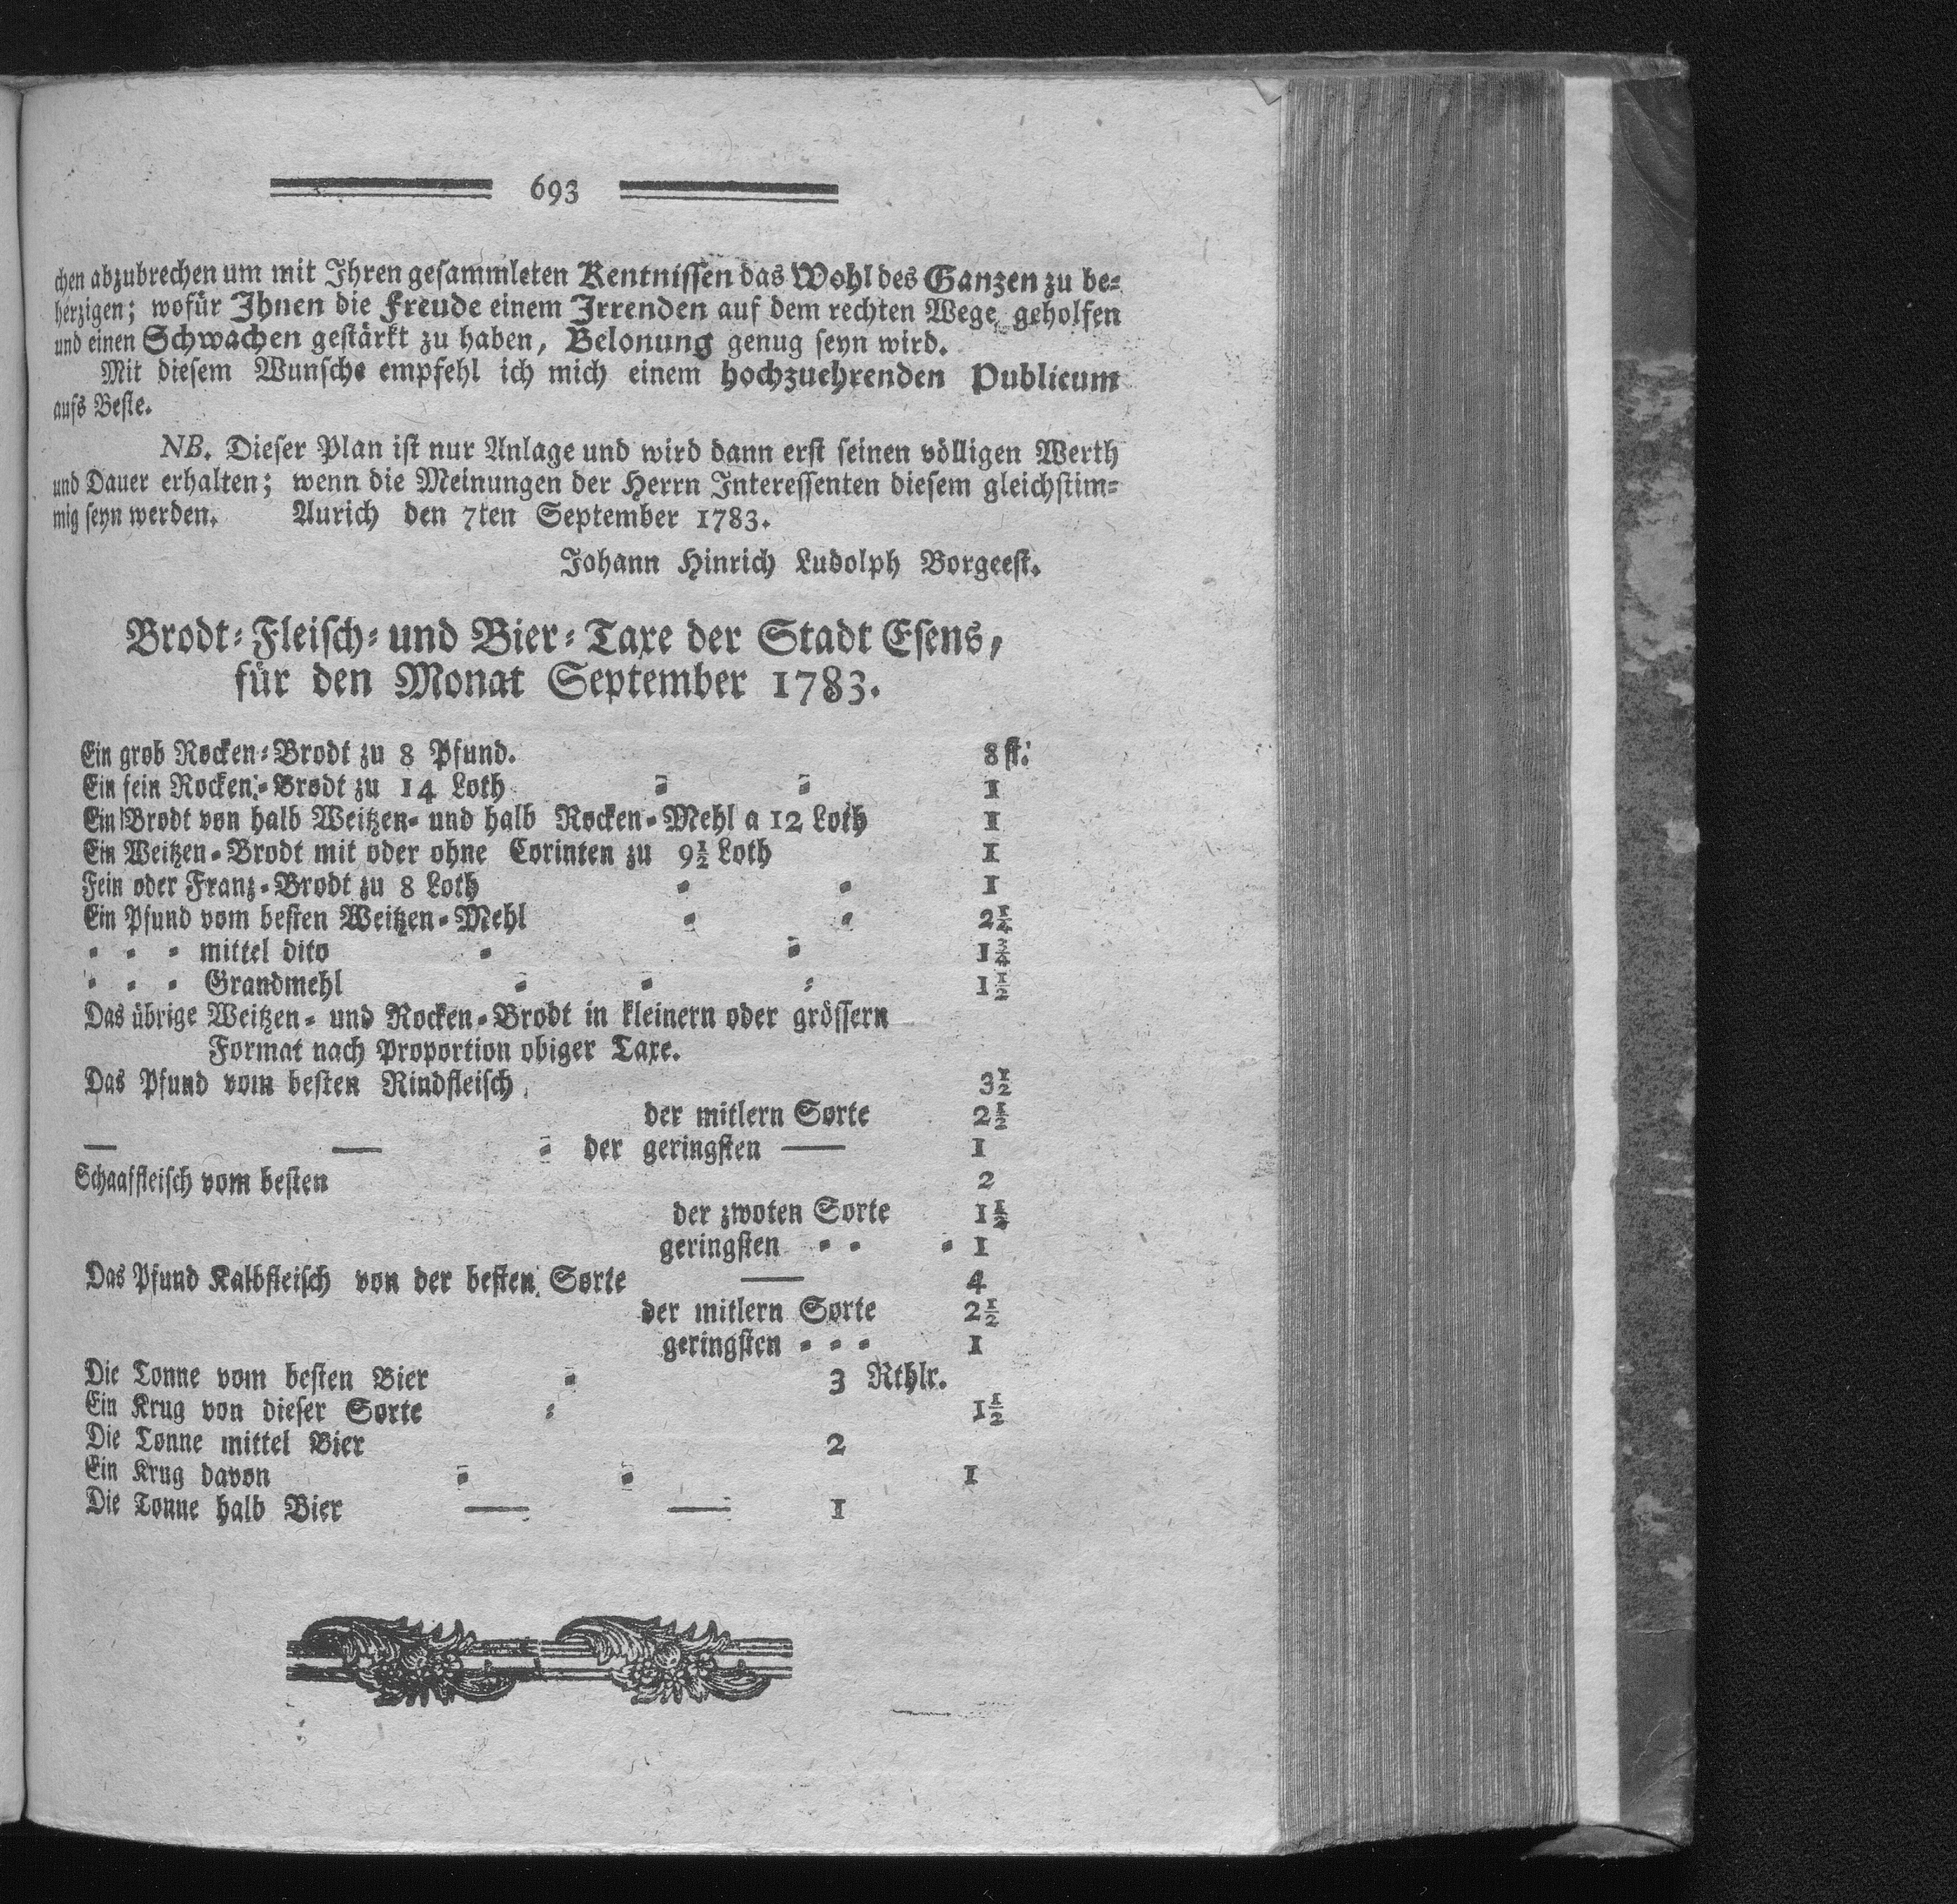 693
chen abzubrechen um mit Ihren gesammleten Kentnissen das Wohl des Ganzen zu be-
herzigen; wofür Ihnen die Freude einem Irrenden auf dem rechten Wege geholfen
und einen Schwachen gestärkt zu haben, Belonung genug seyn wird.
Mit diesem Wunsche empfehl ich mich einem hochzuehrenden Publicum
aufs Beste.
NB. Dieser Plan ist nur Anlage und wird dann erst seinen völligen Werth
und Dauer erhalten; wenn die Meinungen der Herrn Interessenten diesem gleichstim-
mig seyn werden. Aurich den 7ten September 1783.
Johann Hinrich Ludolph Borgeest.
Brodt-Fleisch- und Bier-Taxe der Stadt Esens,
für den Monat September 1783.
Ein grob Rocken-Brodt zu 8 Pfund. 8 st.
Ein fein Rocken-Brodt zu 14 Loth - - 1
Ein Brodt von halb Weitzen- und halb Rocken-Mehl a 12 Loth 1
Ein Weitzen-Brodt mit oder ohne Corinten zu 9½ Loth 1
Fein oder Franz-Brodt zu 8 Loth - - 1
Ein Pfund vom besten Weitzen-Mehl - - 2¼
- - - mittel dito - - 1¾
- - - Grandmehl - - - 1½
Das übrige Weitzen- und Rocken-Brodt in kleinern oder grössern
Format nach Proportion obiger Taxe.
Das Pfund vom besten Rindfleisch 3½
der mitlern Sorte 2½
— — - der geringsten — 1
Schaaffleisch vom besten 2
der zwoten Sorte 1½
geringsten - - - 1
Das Pfund Kalbfleisch von der besten Sorte — 4
der mitlern Sorte 2½
geringsten - - - 1
Die Tonne vom besten Bier - 3 Rthlr.
Ein Krug von dieser Sorte - 1½
Die Tonne mittel Bier 2
Ein Krug davon - - 1
Die Tonne halb Bier — — 1